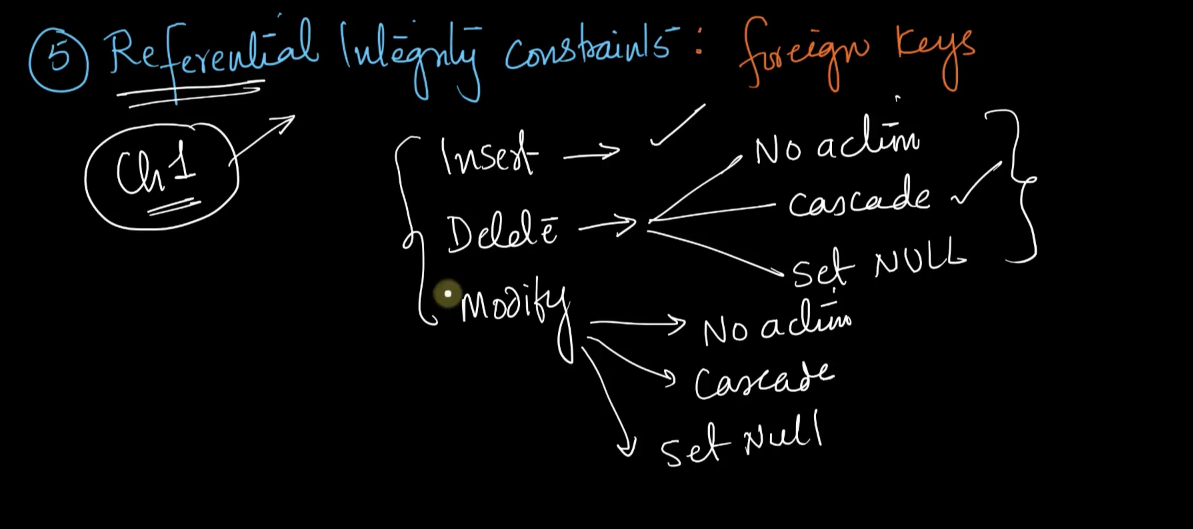 5 Referential Integrity constraints : foreign keys
Ch 1
Insert → ✓
Delete →
No action
Cascade ✓
Set NULL
Modify
No action
Cascade
Set Null